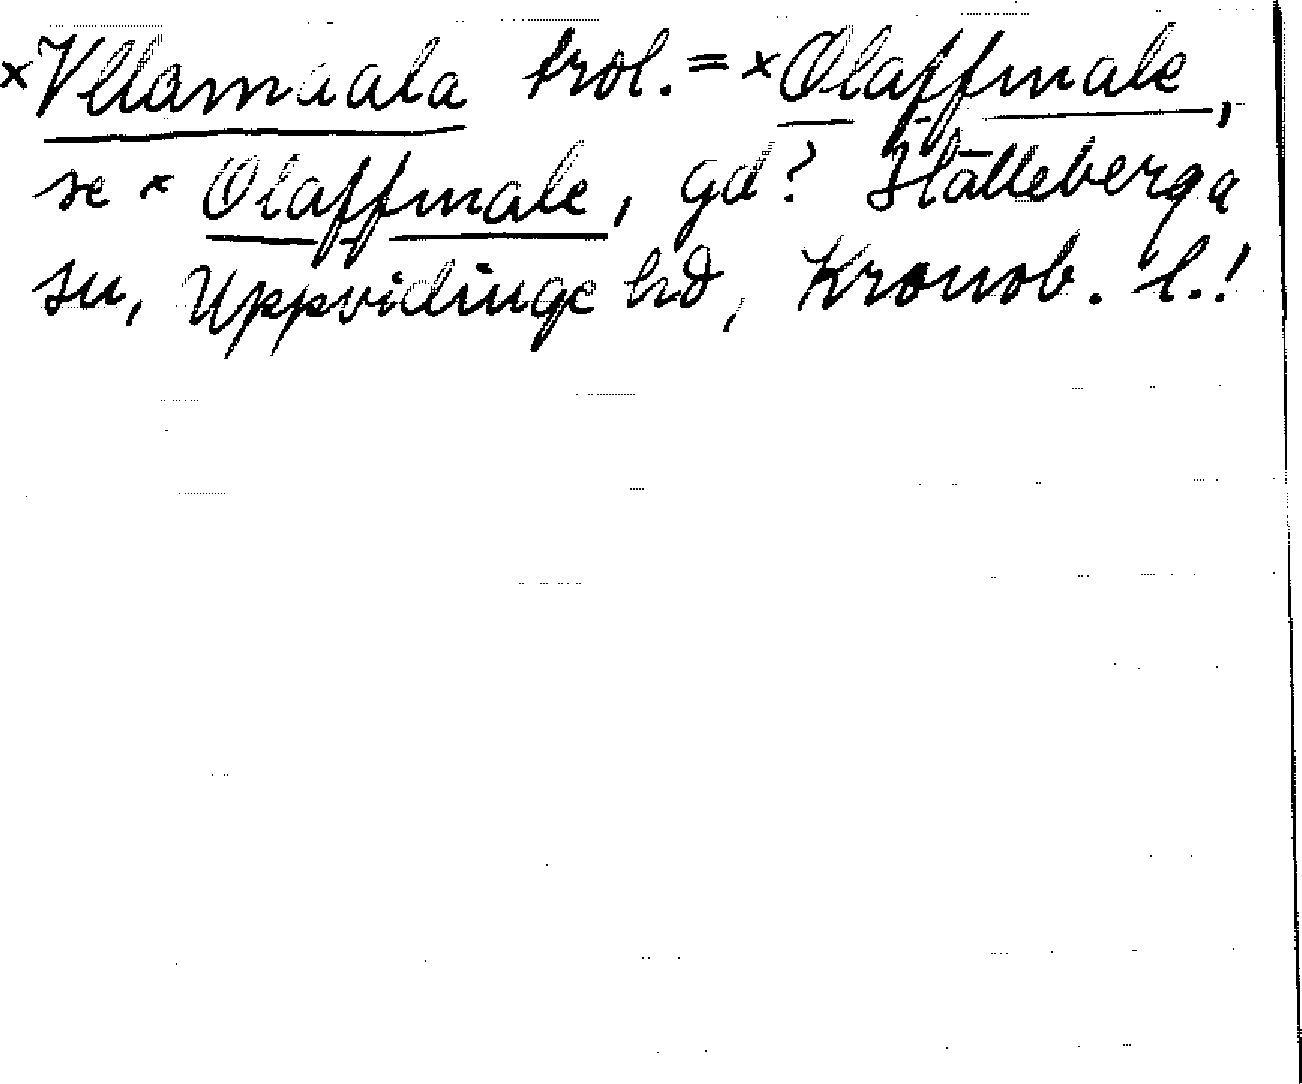 ×Vllamaala trol. = ×Olaffmale,
se × Olaffmale, gd? Hälleberga
sn, Uppvidinge hd, Kronob. l.!